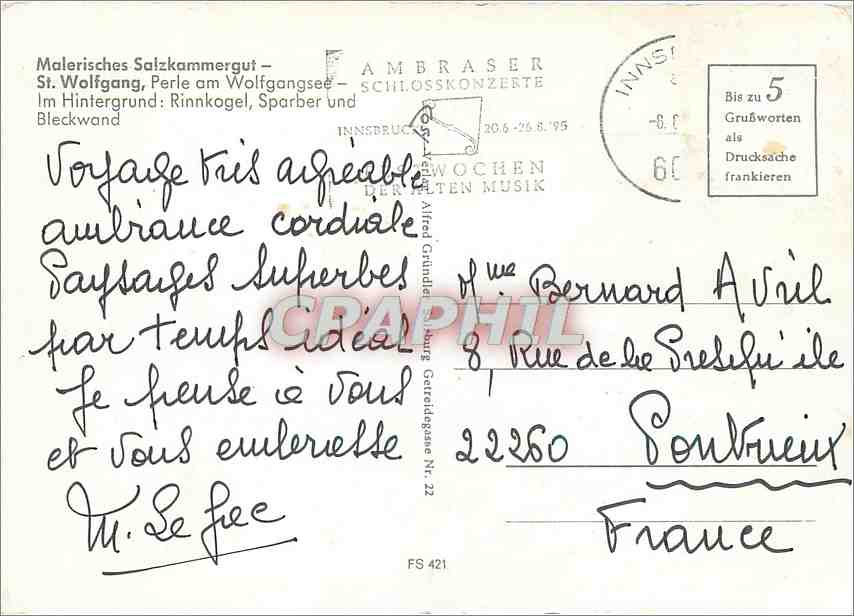 Malerisches Salzkammergut –
St. Wolfgang, Perle am Wolfgangsee –
Im Hintergrund: Rinnkogel, Sparber und
Bleckwand
AMBRASER
SCHLOSSKONZERTE
INNSBRUCK 20.6.-26.8.'95
WOCHEN
DER ALTEN MUSIK
INNS
-8.
60
Bis zu 5
Grußworten
als
Drucksache
frankieren
Voyage très agréable
ambiance cordiale
Paysages superbes
par temps idéal
Je pense à vous
et vous embrasse
M. Le
Cosy-Verlag Alfred Gründler Salzburg Getreidegasse Nr. 22
Mme Bernard Avril
8, Rue de la Presqu'ile
22260 Pontrieux
France
FS 421
CPAPHIL